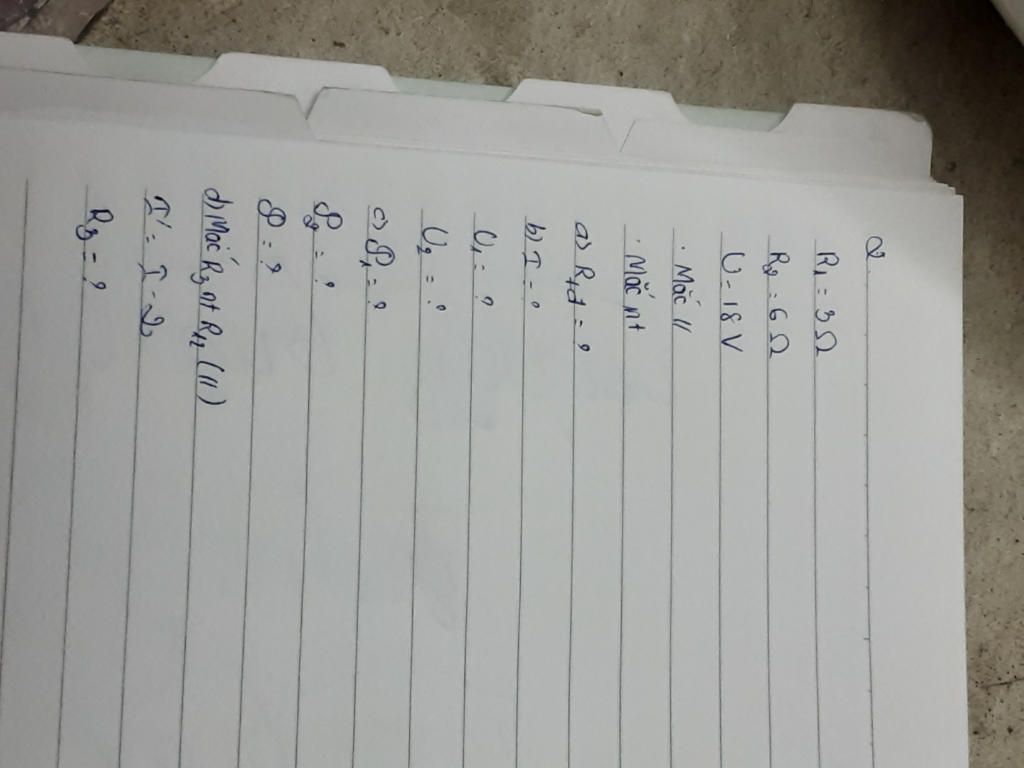 2.
R₁ = 3 Ω
R₂ = 6 Ω
U = 18 V
. Mắc //
. Mắc nt
a) Rtđ = ?
b) I = ?
U₁ = ?
U₂ = ?
c) P₁ = ?
P₂ = ?
P = ?
d) Mắc R₃ nt R₁₂ (//)
I' = I - 2
R₃ = ?